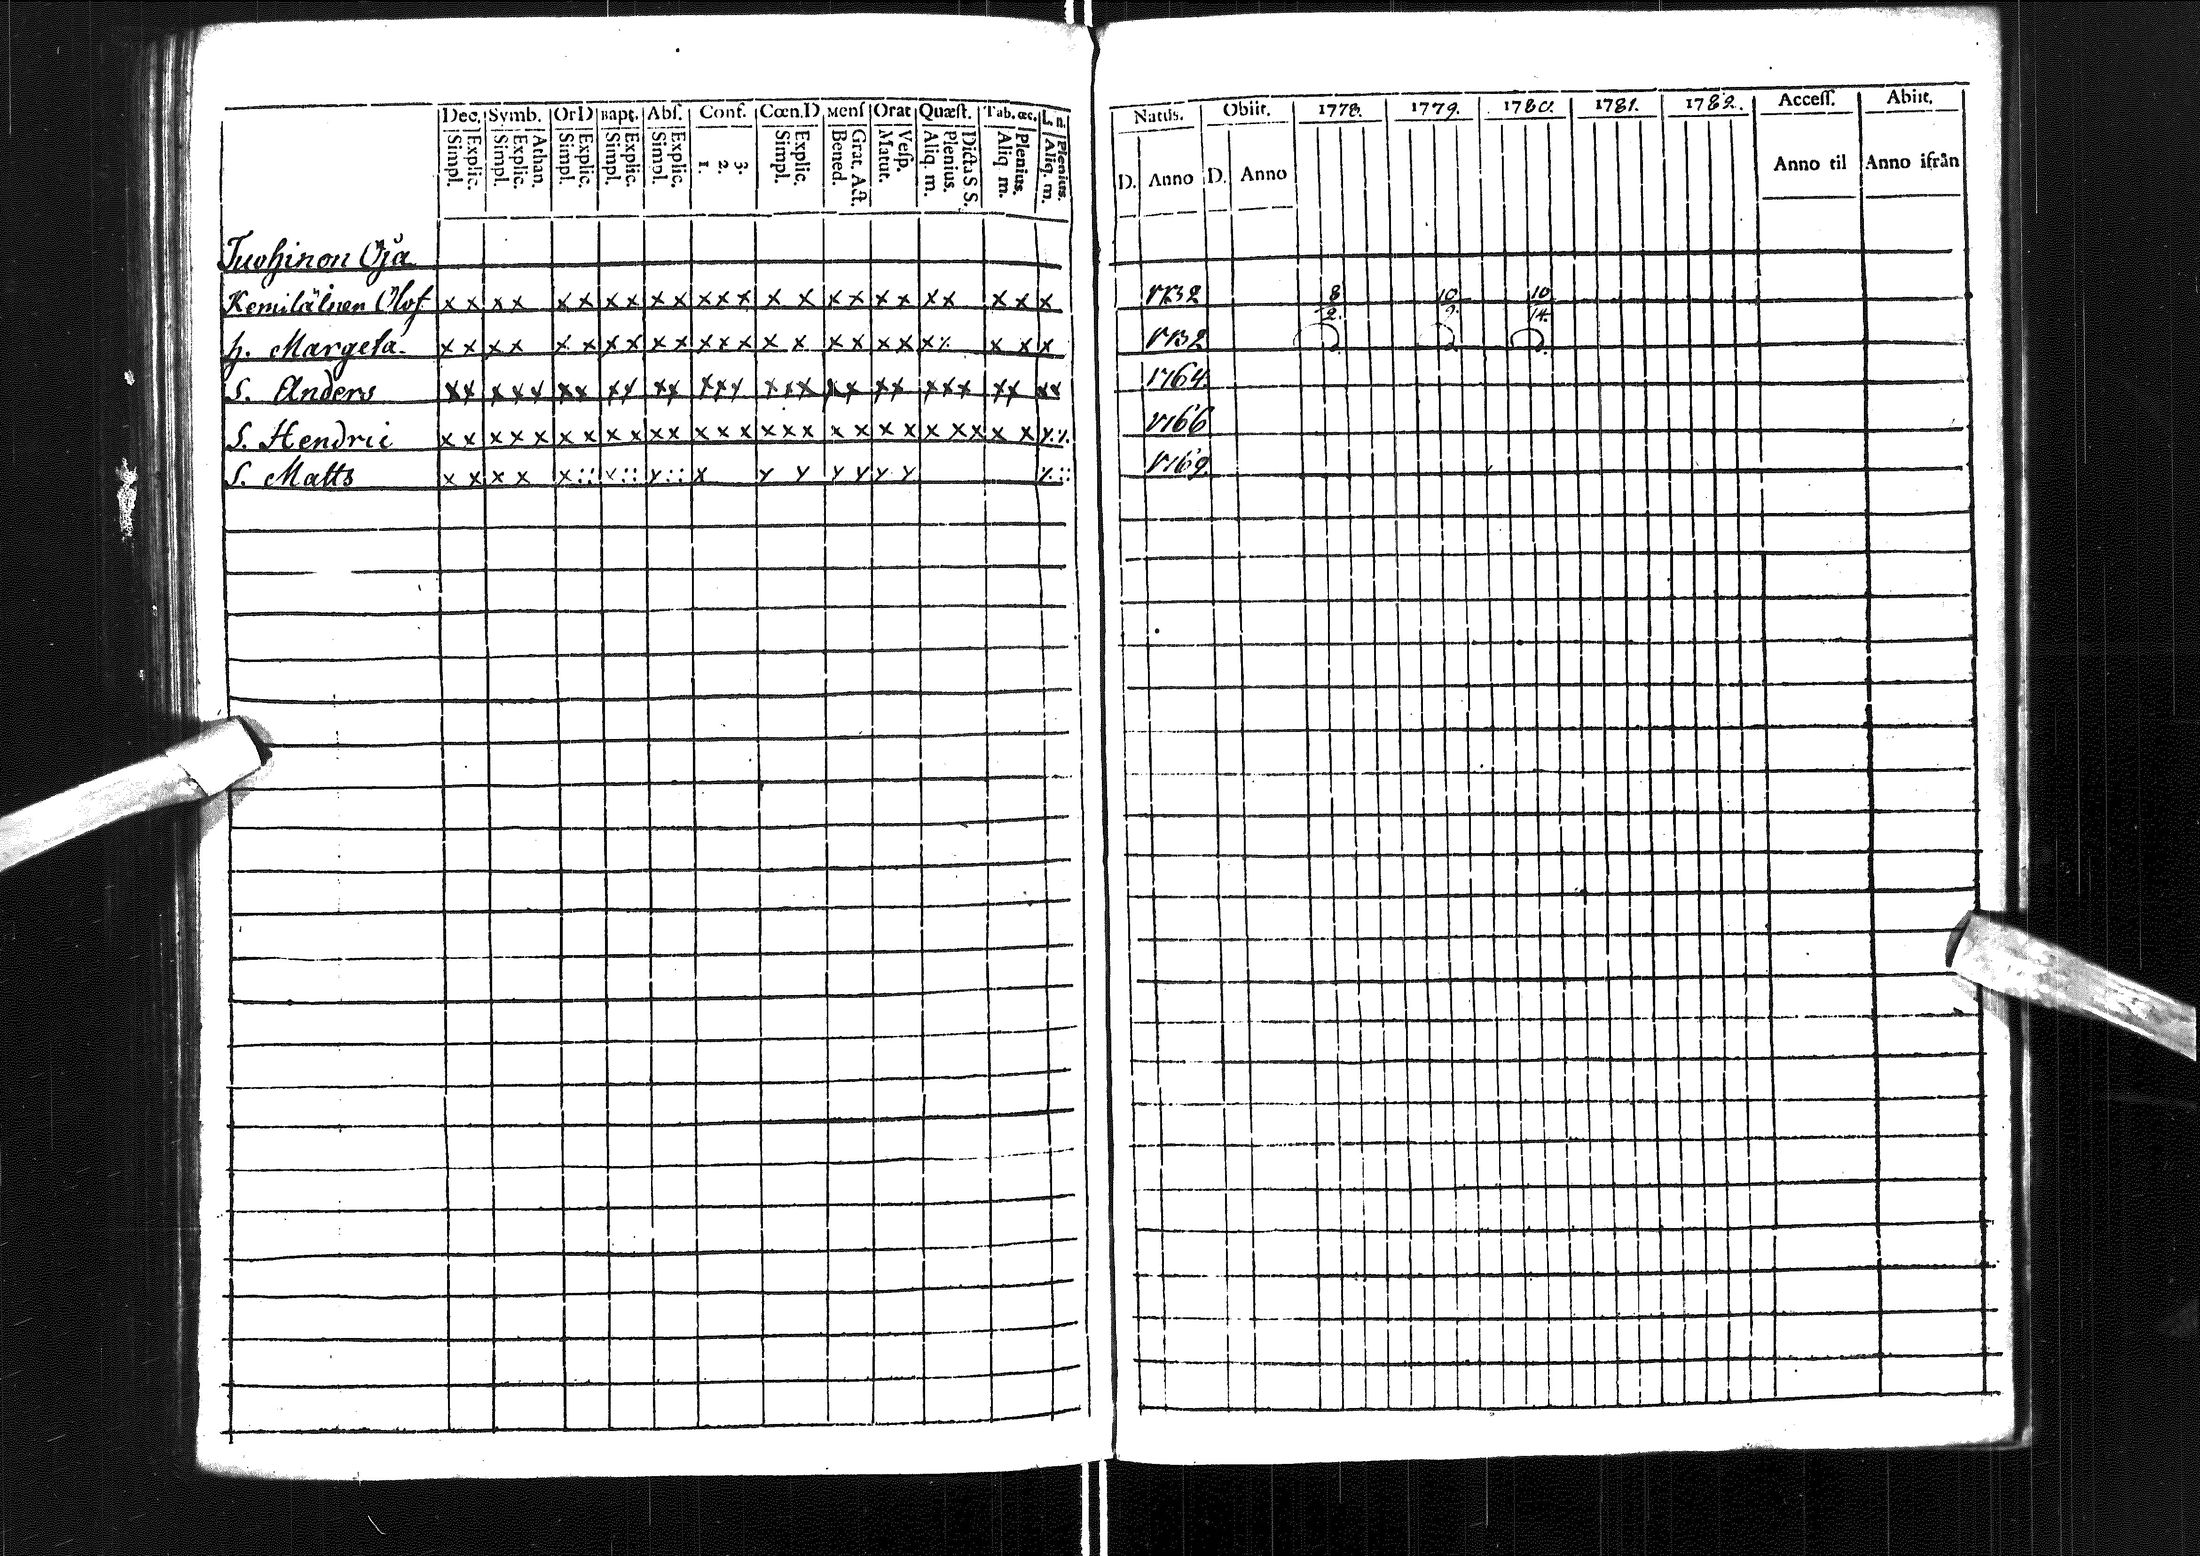 Dec. Symb. OrD Bapt. Abſ. Conf. Cœn.D Menſ Orat Quæſt. Tab. œc. L. n.
Simpl. Explic. Simpl. Explic. Athan. Simpl. Explic. Simpl. Explic. Simpl. Explic. 1. 2. 3. Simpl. Explic. Bened. Grat. Act. Matut. Veſp. Aliq. m. Plenius. Dicta S S. Aliq. m. Plenius. Aliq. m. Plenius.
Öja
Kemiläinen Olof x x x x x x x x x x x x x x x x x x x x x x x x
h. Margeta. x x x x x x x x x x x x x x x x x x x x x x x
S. Anders x x x x x x x x x x x x x x x x x x x x x x x x x x x x
S. Hendric x x x x x x x x x x x x x x x x x x x x x x x x x
S. Matts x x x x x x x x
Natus. Obiit. 1778. 1779. 1780. 1781. 1782. Acceſſ. Abiit.
D. Anno D. Anno Anno til Anno ifrån
1732 8/2. 10/9. 10/14.
1732
1764.
1766
1769